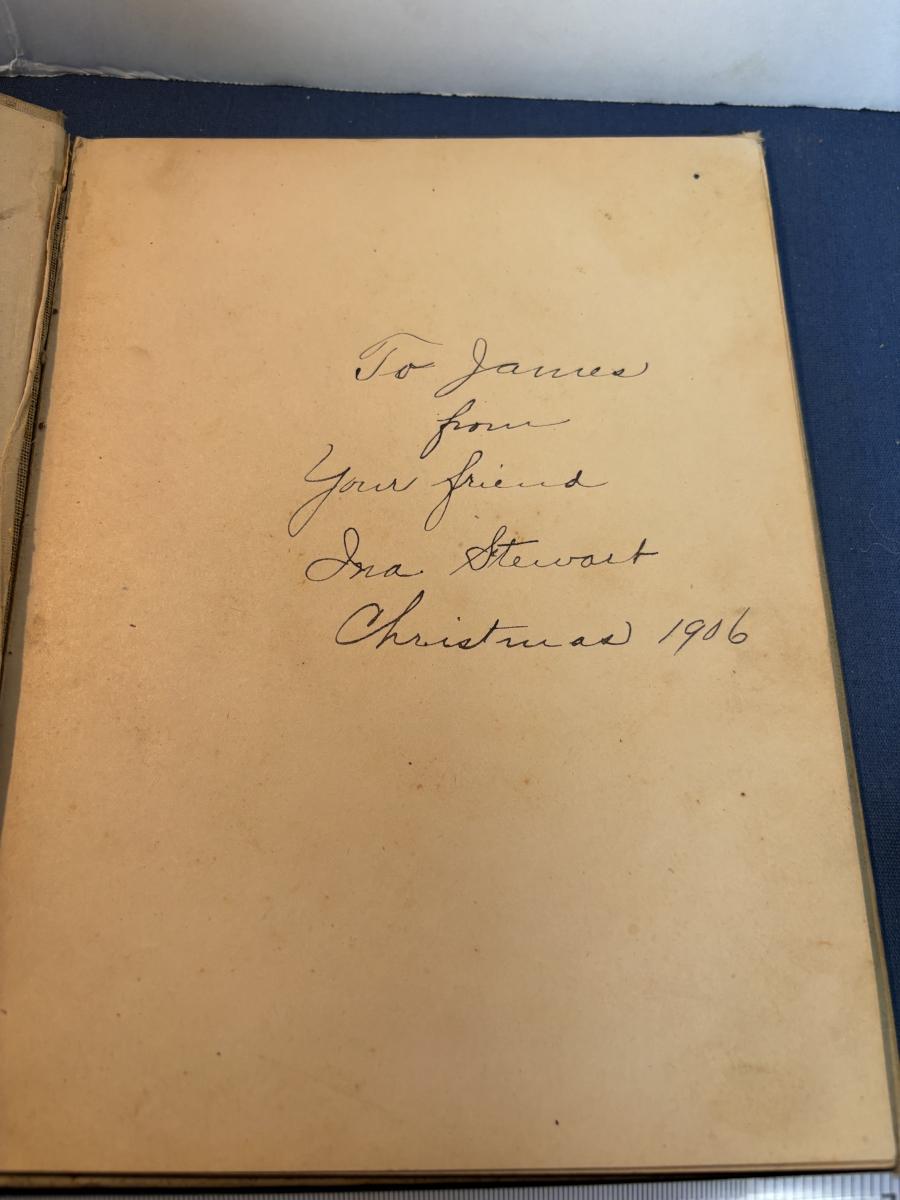 To James
from
Your friend
Ina Stewart
Christmas 1906